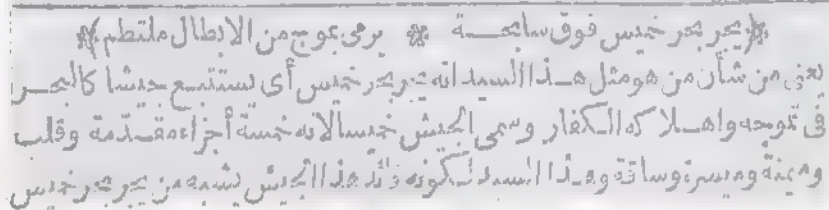 ﴿يجر بحر خميس فوق سابحة * يرمى بموج من الابطال ملتطم﴾
يعنى من شأن من هو مثل هذا السيد انه يجر بحر خميس أى يستتبع جيشا كالبحر
فى تموجه واهلاكه الكفار وسمى الجيش خميسا لانه خمسة أجزاء مقدمة وقلب
وميمنة وميسرة وساقة وهذا السيد لكونه قائد هذا الجيش يشبه من يجر بحر خميس